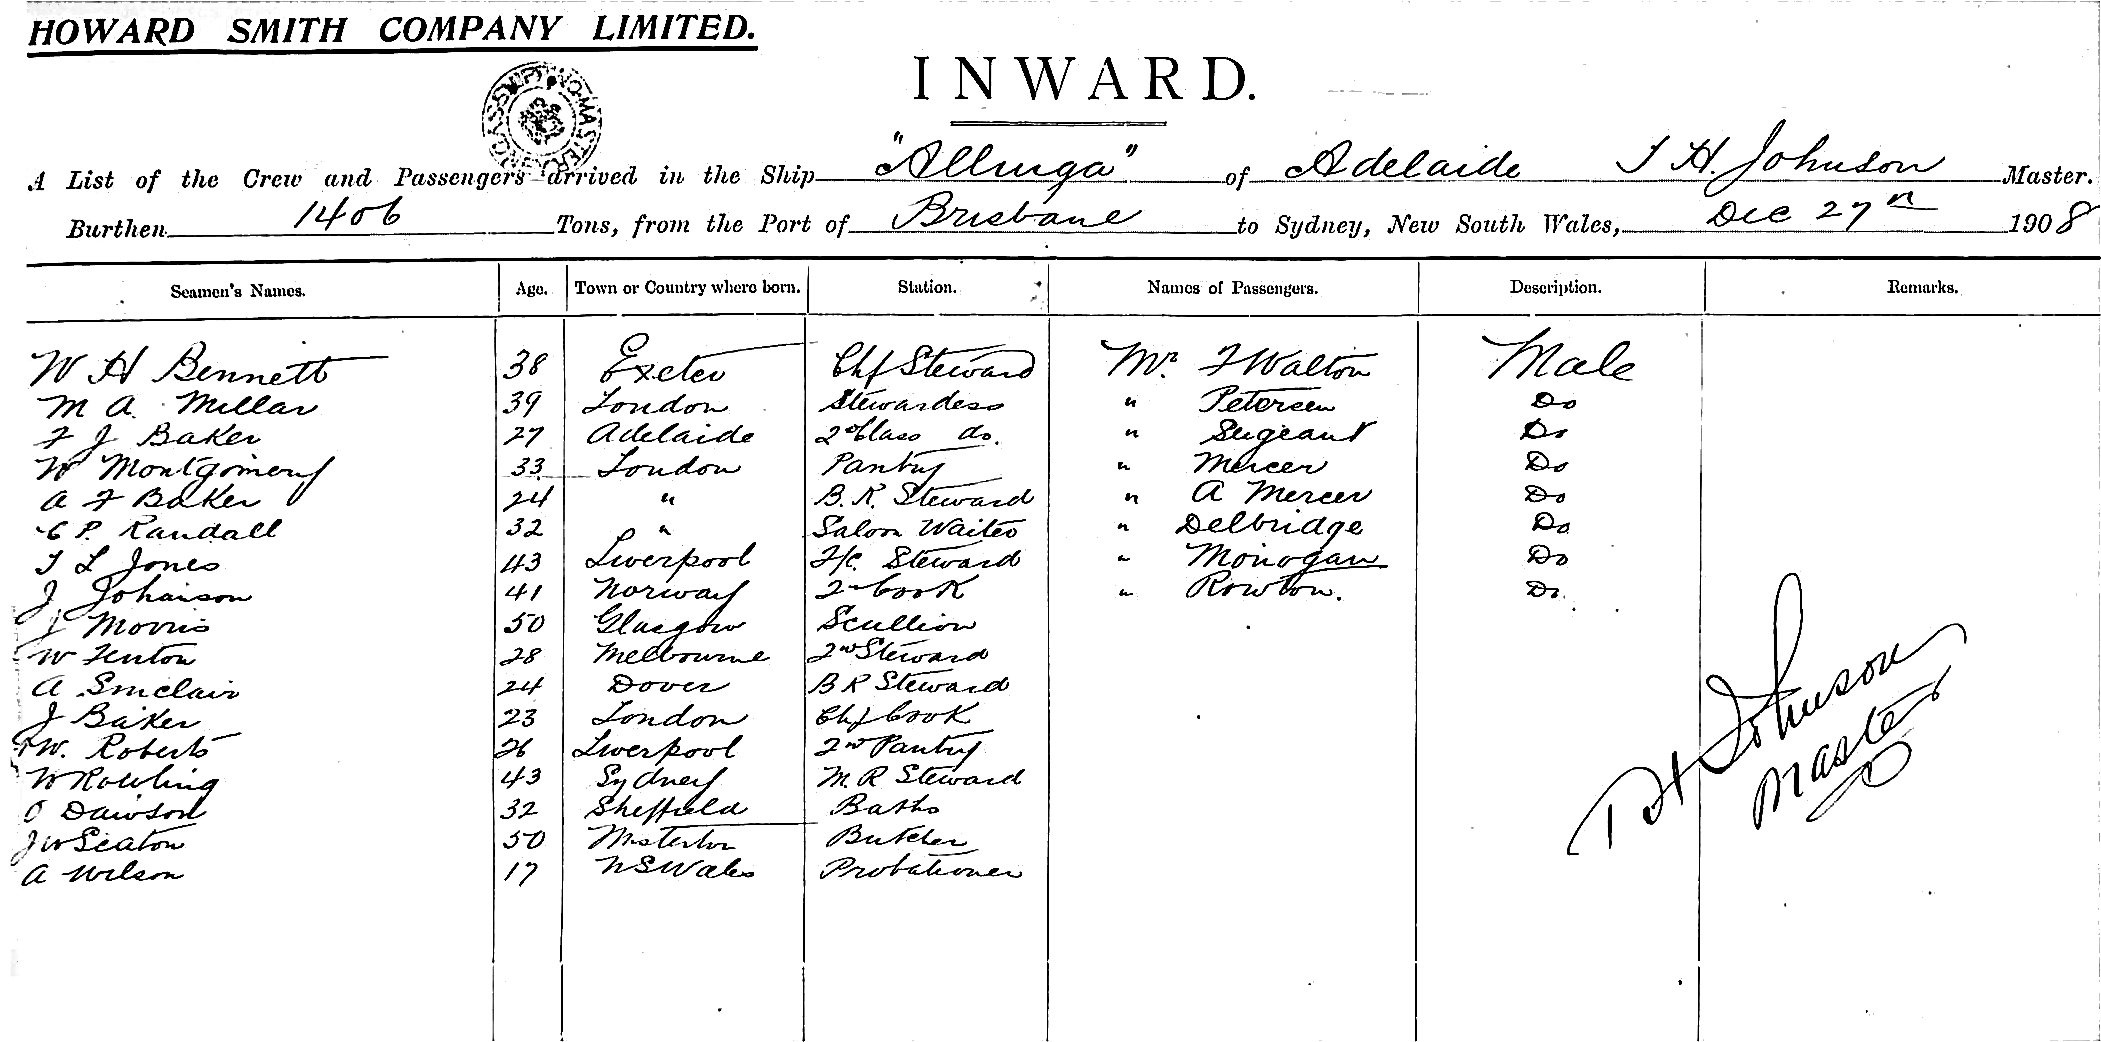 HOWARD SMITH COMPANY LIMITED.
INWARD.
A List of the Crew and Passengers arrived in the Ship "Allinga" of Adelaide T H. Johnson Master.
Burthen 1406 Tons, from the Port of Brisbane to Sydney, New South Wales, Dec 27th 1908
Seamen's Names. Age. Town or Country where born. Station. Names of Passengers. Description. Remarks.
W H Bennett 38 Exeter Chf Steward Mr. F Walton Male
M A. Millar 39 London Stewardess " Petersen Do
F J Baker 27 Adelaide 2nd Class do. " Sergeant Do
W Montgomery 33 London Pantry " Mercer Do
A F Baker 24 " B. R. Steward " A Mercer Do
C P. Randall 32 " Saloon Waiter " Delbridge Do
T L Jones 43 Liverpool F/c. Steward " Monogan Do
J Johanson 41 Norway 2nd Cook " Rowton. Do.
J Morris 50 Glasgow Scullion
W Fenton 28 Melbourne 2nd Steward
A Sinclair 24 Dover B R Steward
J Baker 23 London Chf Cook
W. Roberts 26 Liverpool 2nd Pantry
W Rowling 43 Sydney M. R Steward
O Dawson 32 Sheffield Baths
J W Seaton 50 Misterton Butcher
A Wilson 17 N S Wales Probationer
T H Johnson
Master